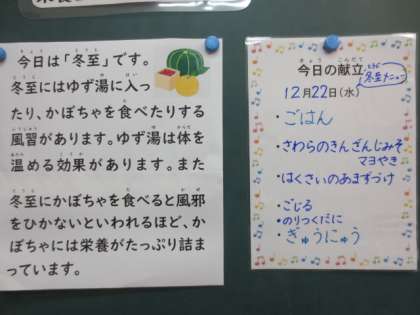 今日は「冬至」です。
冬至にはゆず湯に入っ
たり、かぼちゃを食べたりする
風習があります。ゆず湯は体を
温める効果があります。また
冬至にかぼちゃを食べると風邪
をひかないといわれるほど、か
ぼちゃには栄養がたっぷり詰ま
っています。
今日の献立
冬至メニュー
12月22日(水)
・ごはん
・さわらのきんざんじみそ
マヨやき
・はくさいのあまずづけ
・ごじる
・のりつくだに
・ぎゅうにゅう